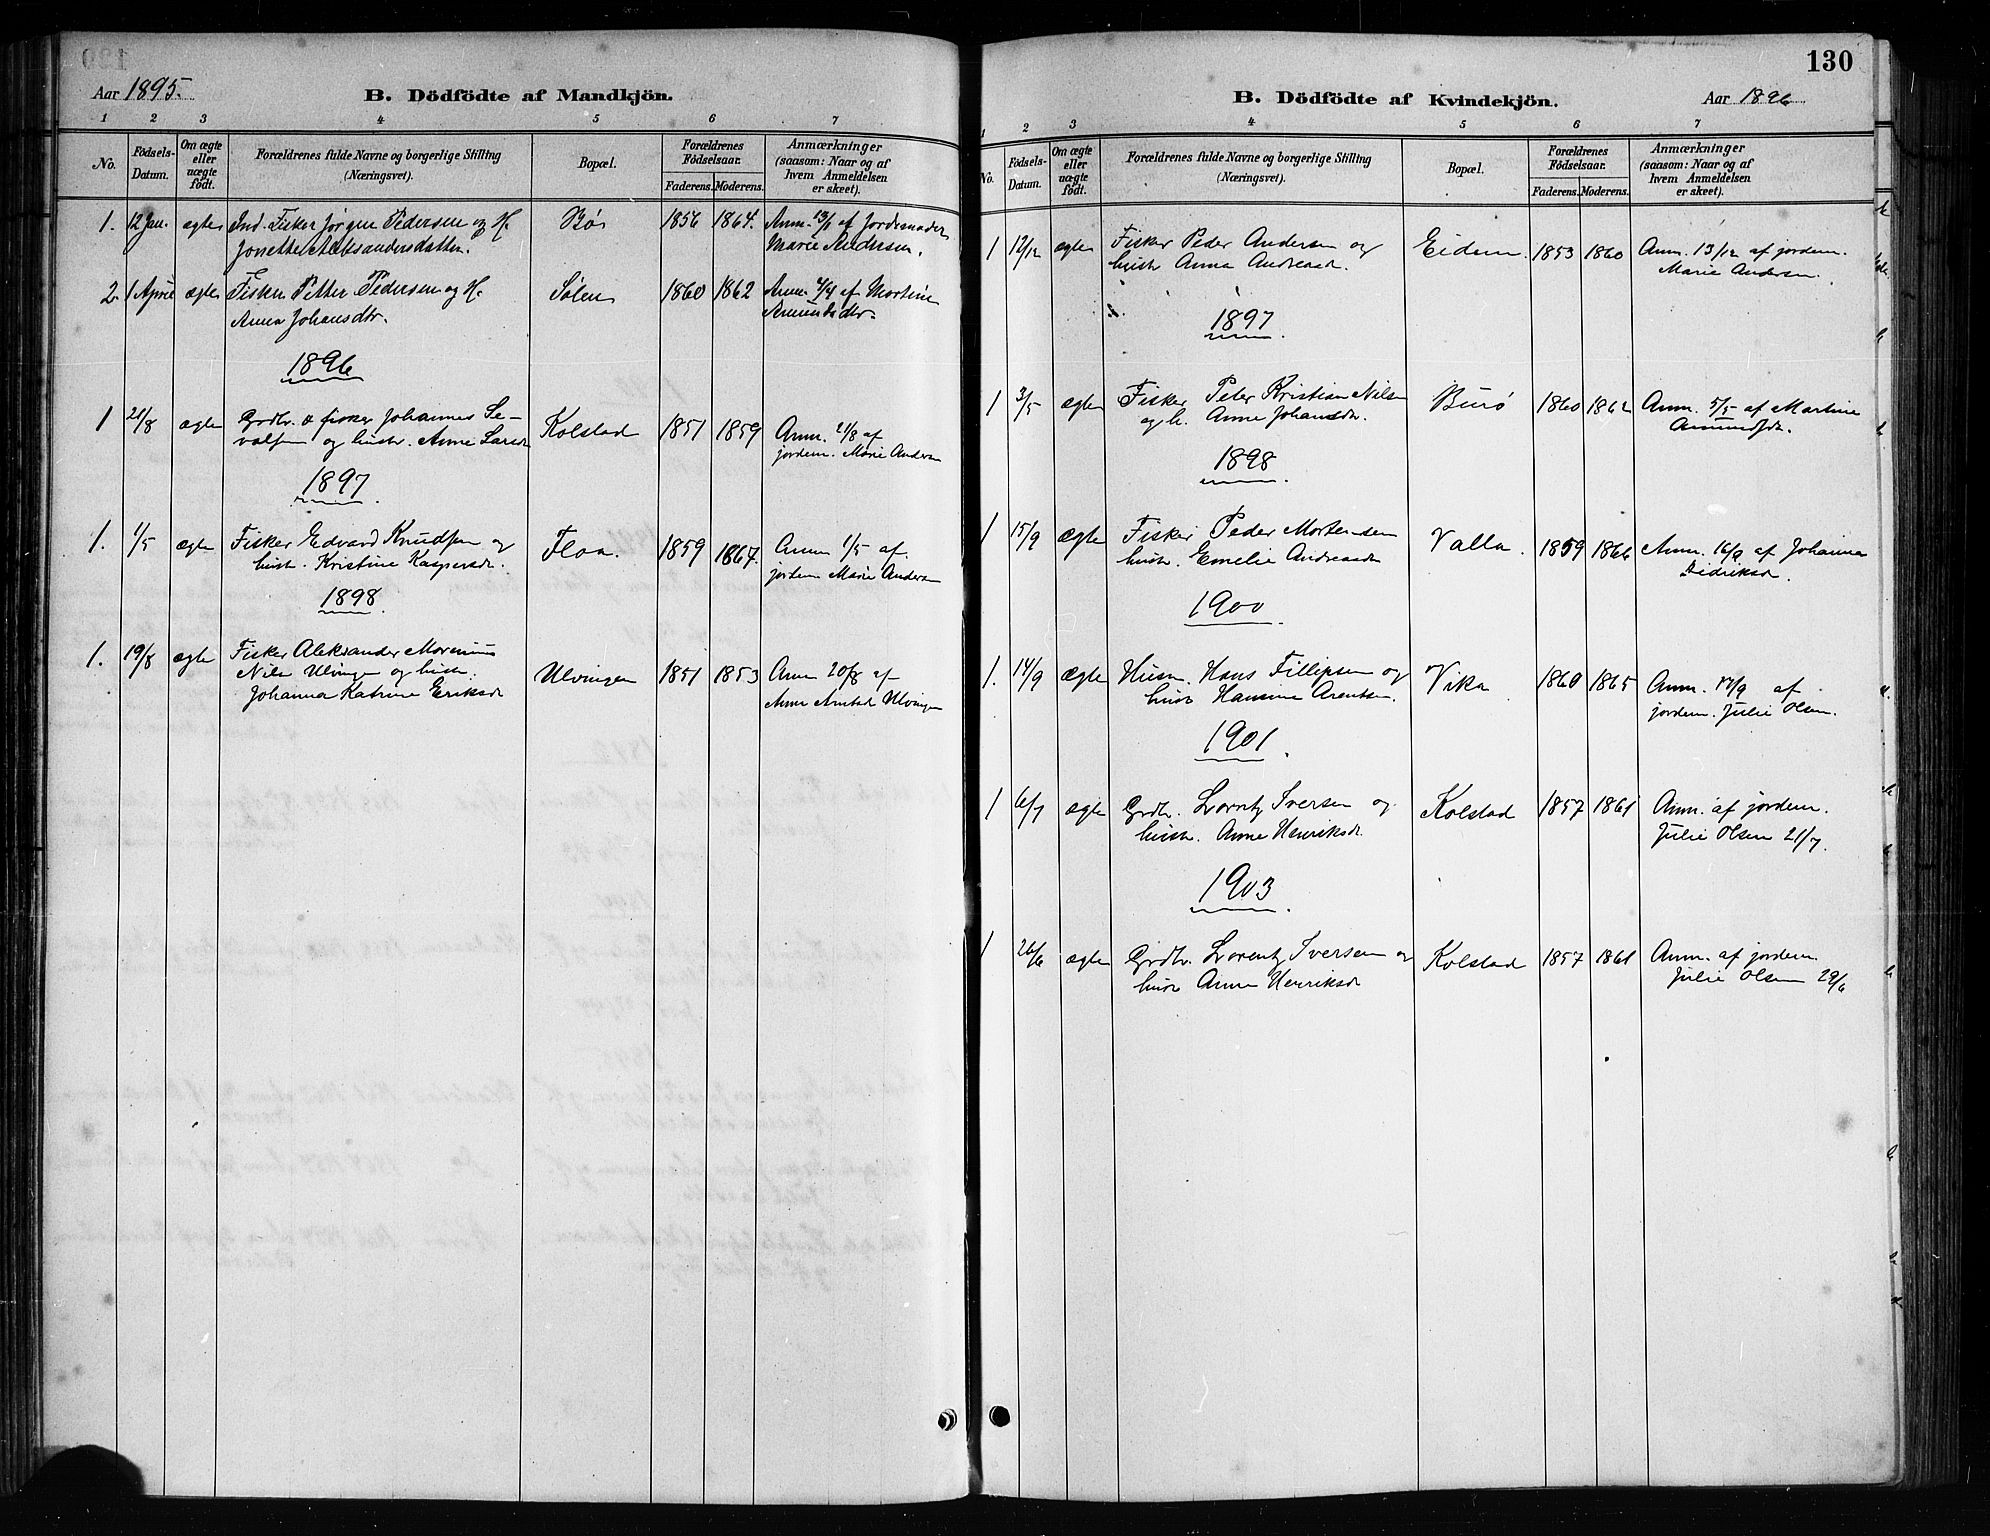 Aar 1895.
B. Dödfödte af Mandkjön.
1 2 3 4 5 6 7
No.
Födsels-
Datum.
Om ægte
eller
uægte
födt.
Forældrenes fulde Navne og borgerlige Stilling
(Næringsvei).
Bopæl.
Forældrenes
Födselsaar.
Faderens. Moderens.
Anmærkninger
(saasom: Naar og af
hvem Anmeldelsen
er skeet).
1. 12 Jan. ægte Ind. Fisker Jørgen Pedersen og H. Bøs 1856 1864. Anm. 13/1 af Jordemoder
Jonette Aleksandersdatter. Marie Andersen.
2. 1 April ægte Fisker Petter Pedersen og H. Sølen 1860 1862 Anm. 4/4 af Martine
Anna Johansdtr. Amundsdtr.
1896
1 21/8 ægte Grdbr. & fisker Johannes Se-
valsen og hustr. Anne Larsdr Kolstad 1851 1859 Anm. 21/8 af
jordem. Marie Anders
1897
1. 1/5 ægte Fisker Edvard Knudsen og Floa. 1859 1867. Anm 1/5 af
hustr. Kristine Kaspersdr. jordem Marie Anders
1898
1. 19/8 ægte Fisker Aleksander Morenius
Nils Ulvingen og hustr. Ulvingen 1851 1853 Anm 20/8 af
Johanna Katrine Eriksdr Anne Ulvingen
130
B. Dödfödte af Kvindekjön.
Aar 1896
1 2 3 4 5 6 7
No.
Födsels-
Datum.
Om ægte
eller
uægte
födt.
Forældrenes fulde Navne og borgerlige Stilling
(Næringsvei).
Bopæl.
Forældrenes
Födselsaar.
Faderens. Moderens.
Anmærkninger
(saasom: Naar og af
hvem Anmeldelsen
er skeet).
1 12/12 ægte Fisker Peder Andersen og Eidem. 1853 1860 Anm. 13/12 af jordem.
hustr Anna Andreasdr. Marie Andersen.
1897
1 3/5 ægte Fisker Peter Kristian Nilsen Burø 1860 1862 Anm. 5/5 af Martine
og h. Anne Johansdr. Amundsdr.
1898
1 15/9 ægte Fisker Peder Mortensen Valla. 1859 1866 Anm. 16/9 af Johanna
hustr. Emelie Andreasdr Didriksdr.
1900
1. 14/9 ægte Husm. Hans Fillipsen og Vika 1860 1865 Anm. 17/9 af
hustr Hansine Arentsen. jordem. Julie Olsen.
1901.
1 6/7 ægte Grdbr. Lorentz Iversen og Kolstad 1857 1861 Anm. af jordem.
hustr. Anne Henriksdr. Julie Olsen 21/7.
1903
1 26/6 ægte Grdbr. Lorentz Iversen og Kolstad 1857 1861 Anm. af jordem.
hustr Anne Henriksdr Julie Olsen 29/6